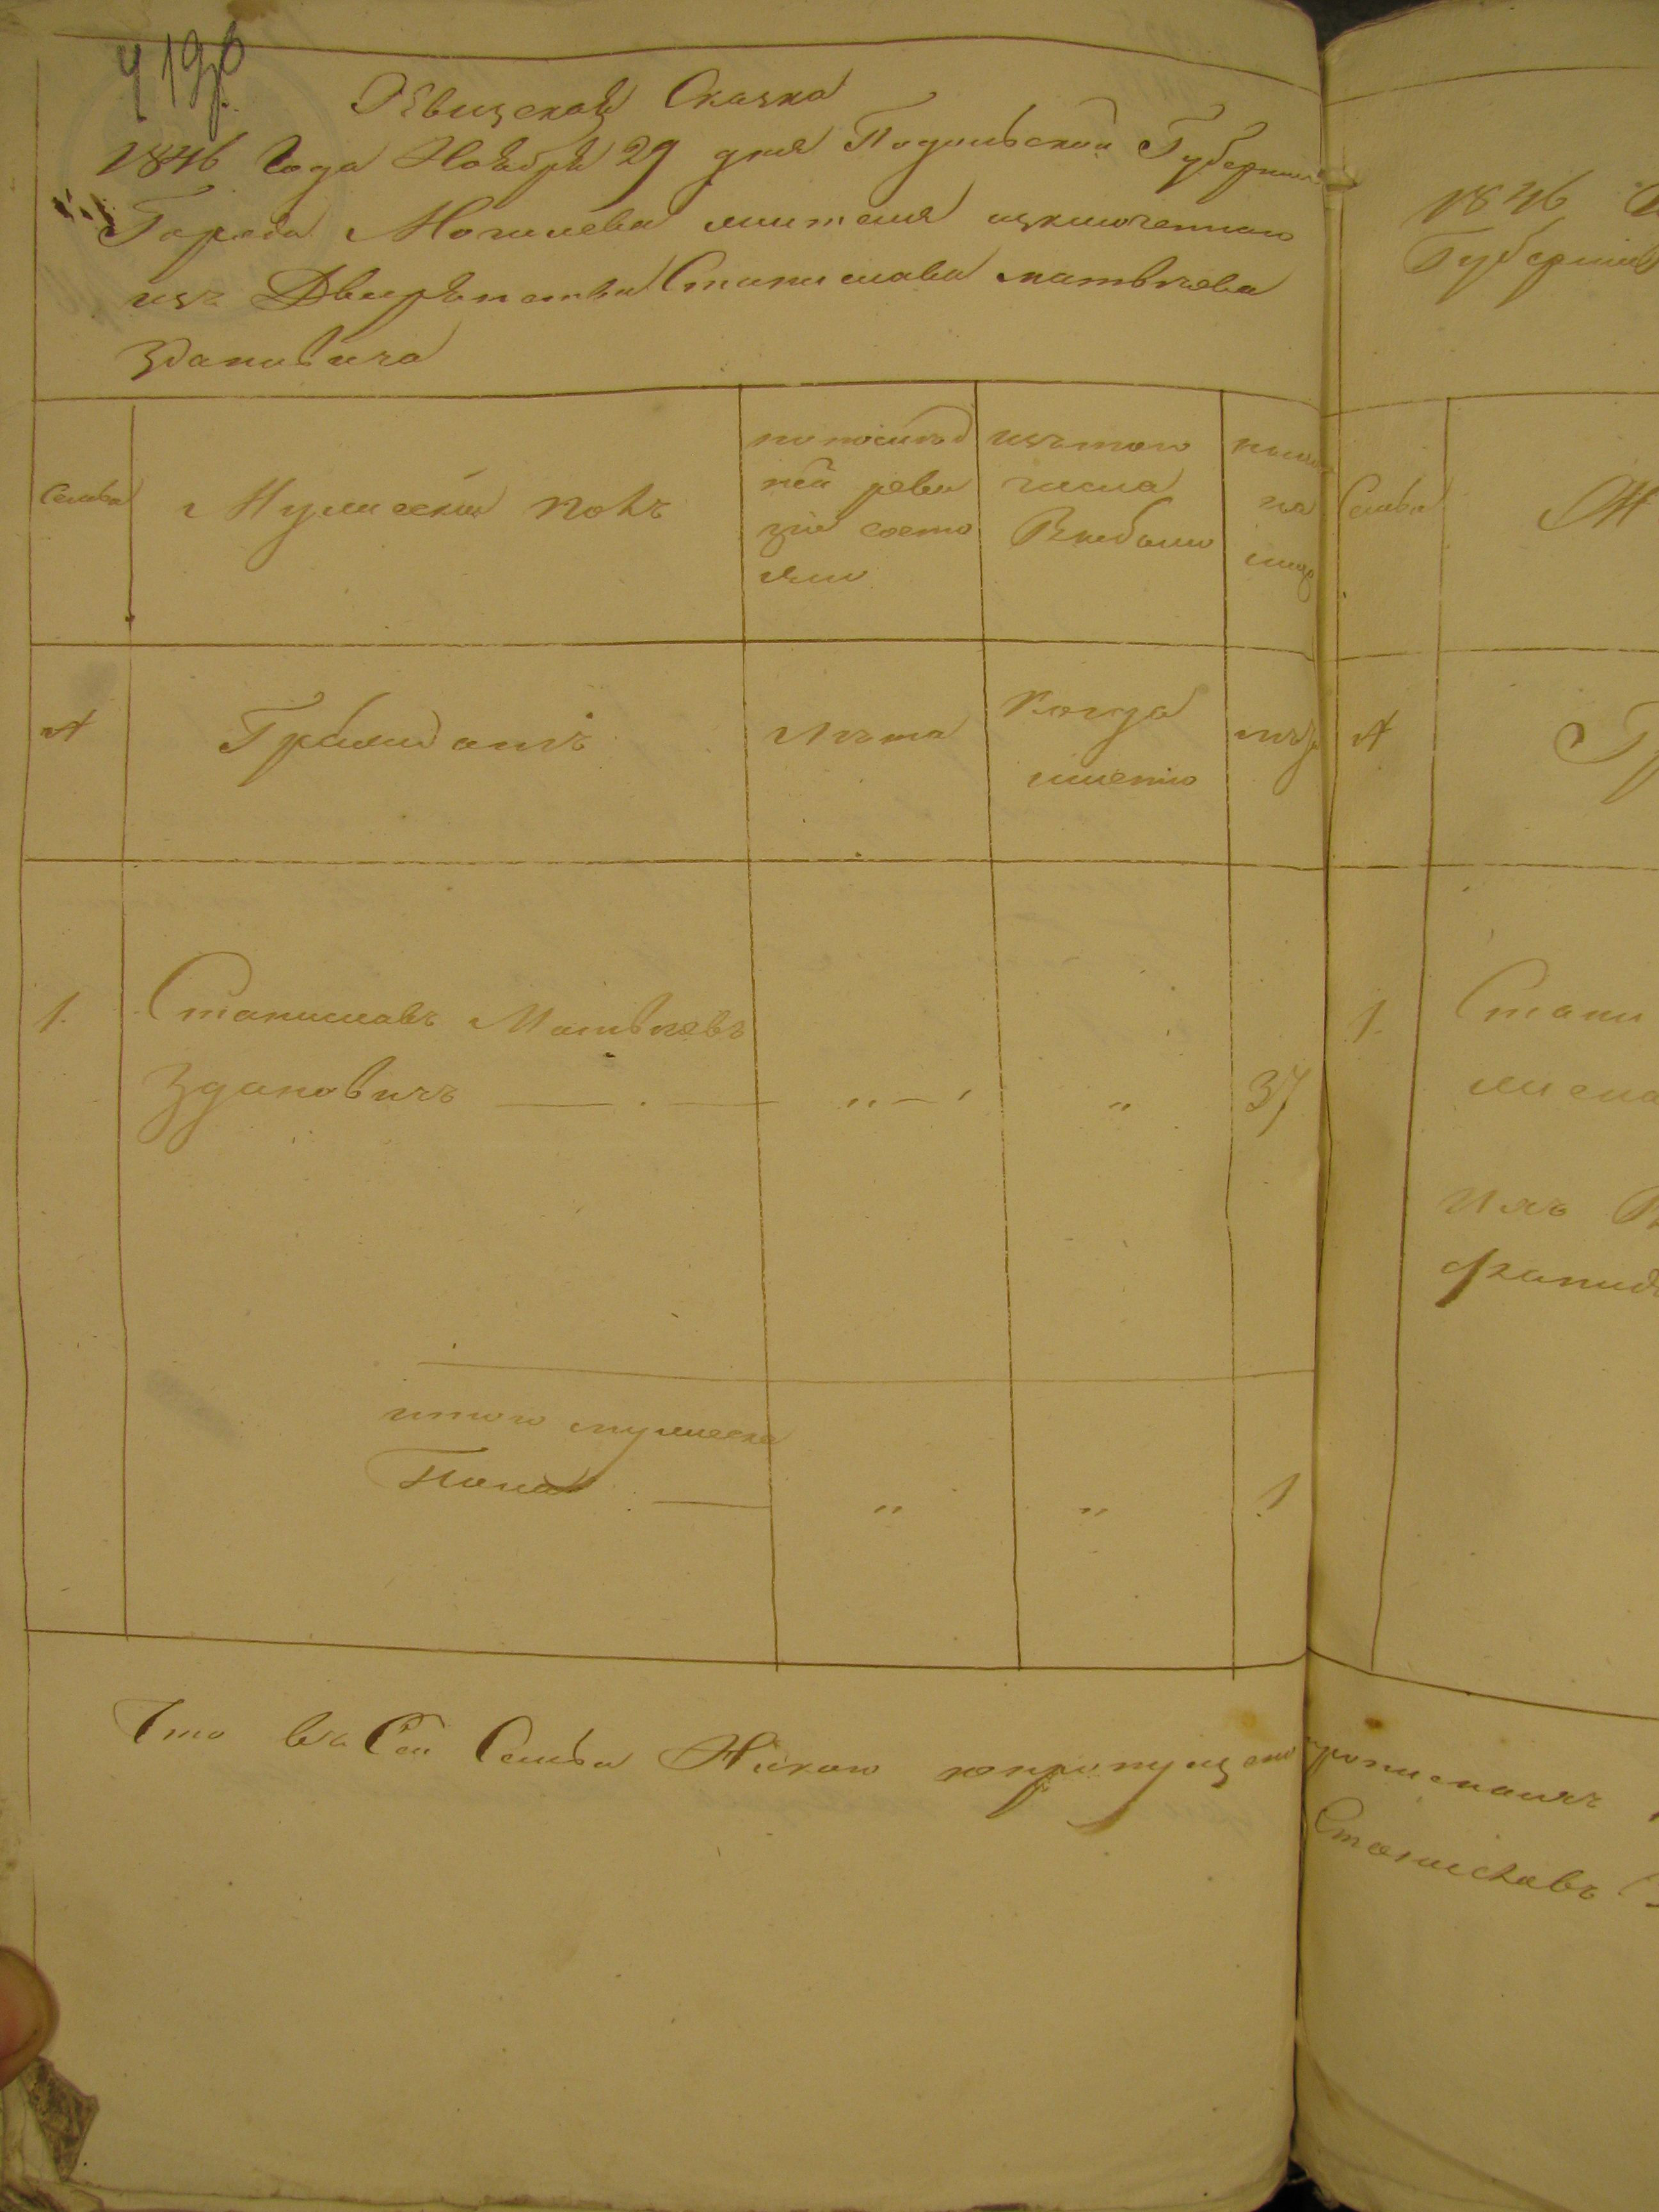 Ревизская Сказка
1846 Года Ноября 29 дня Подольской Губернии
Города Могилева жителя изключенного
изъ Дворянства Станислава матвѣева
Здановича
Семьи
Мужеский полъ
по послѣд
ней реви
зіи состо
яло
изътого
числа
Выбыло
нынѣ
на
лицо
№
Гражданъ
Лѣта
Когда
имянно
лѣта
1.
Станиславъ Матвѣевъ
Здановичъ — . — „ — „ „ 37
итого мужеска
Пола — „ „ 1
Что въ Сей Семьи Никого непропущено
1846
Губернии
Семьи
№
1.
Стани
изъ
Станиславъ